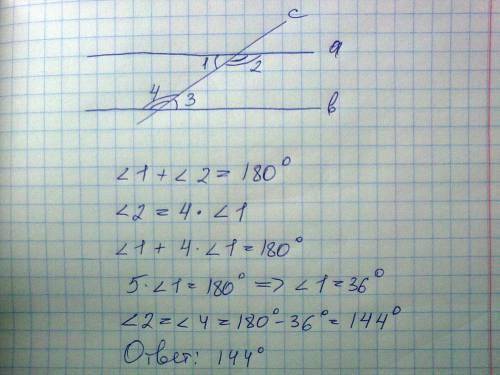 c
a
1 2
4 3
b
∠1 + ∠2 = 180°
∠2 = 4 · ∠1
∠1 + 4 · ∠1 = 180°
5 · ∠1 = 180° => ∠1 = 36°
∠2 = ∠4 = 180° - 36° = 144°
Ответ: 144°